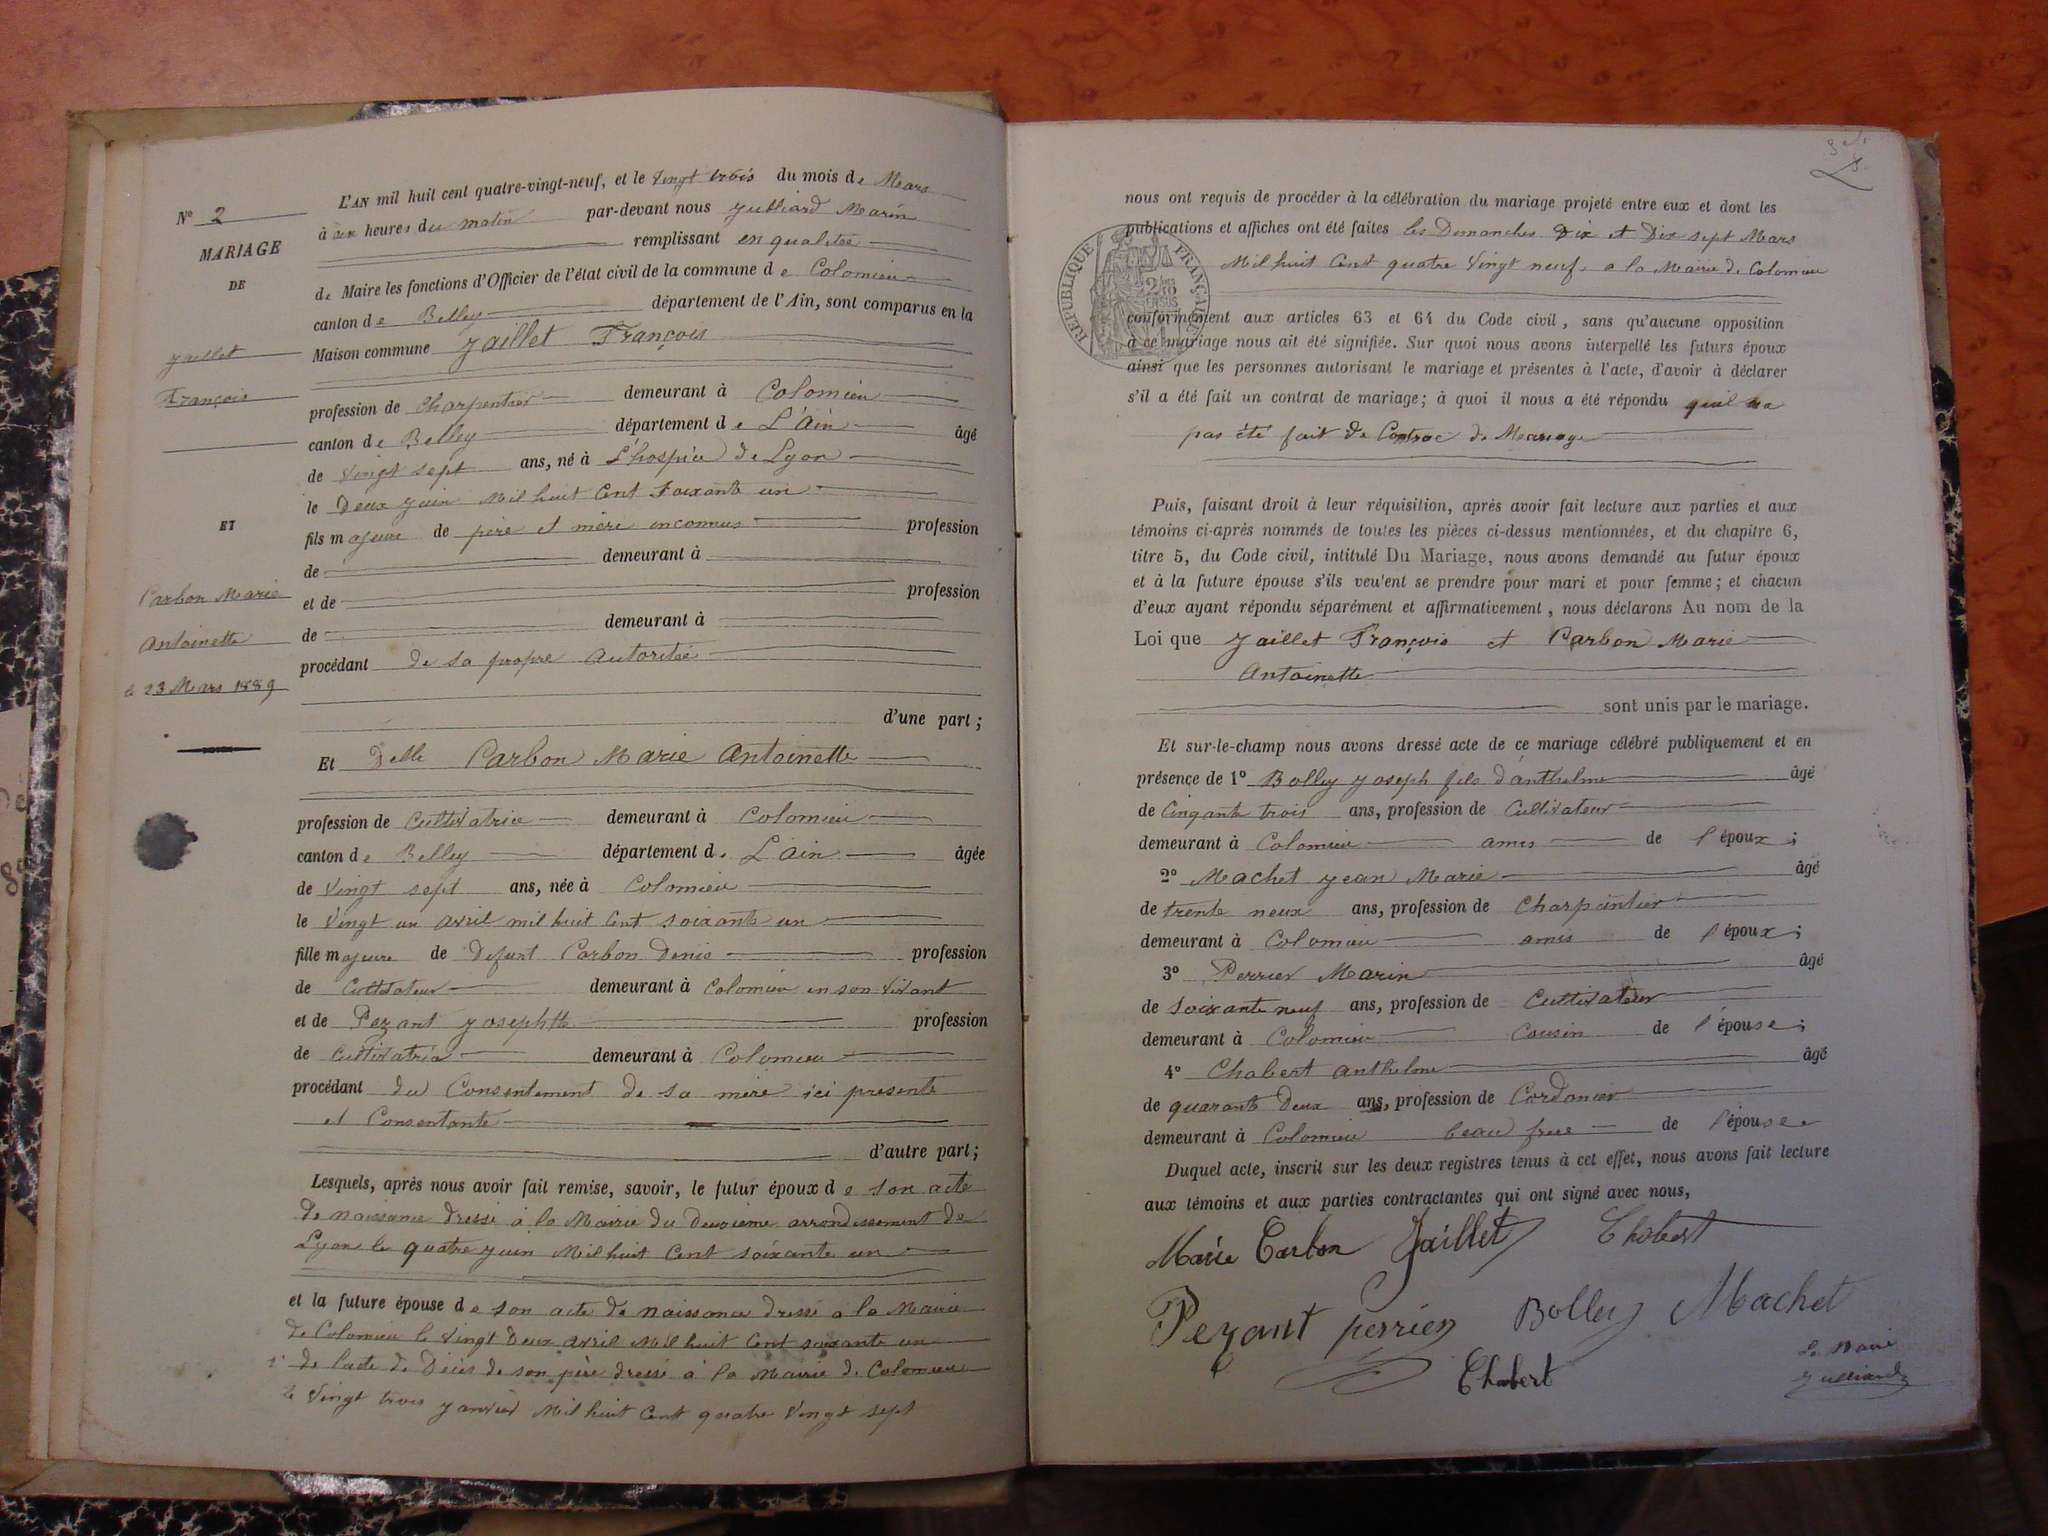 N° 2
MARIAGE
DE
Jaillet
François
ET
Carbon Marie
Antoinette
le 23 Mars 1889
L'AN mil huit cent quatre-vingt-neuf, et le Vingt trois du mois de Mars
à heures du matin par-devant nous Julliard Marin
remplissant en qualitée
de Maire les fonctions d'Officier de l'état civil de la commune de Colomieu
canton de Belley département de l'Ain, sont comparus en la
Maison commune Jaillet François
profession de Charpentier demeurant à Colomieu
canton de Belley département de L'Ain âgé
de Vingt sept ans, né à L'hospice de Lyon
le Deux Juin Mil huit Cent Soixante un
fils majeure de père et mère inconnus profession
de demeurant à
et de profession
de demeurant à
procédant de sa propre Autoritée
d'une part ;
Et Delle Carbon Marie Antoinette
profession de Cultivatrice demeurant à Colomieu
canton de Belley département de L'Ain âgée
de Vingt sept ans, née à Colomieu
le Vingt un Avril mil huit Cent soixante un
fille majeure de Defunt Carbon Denis profession
de Cultivateur demeurant à Colomieu en son Vivant
et de Pezant Josephtte profession
de Cultivatrice demeurant à Colomieu
procédant du Consentement de sa mère ici presente
et Consentante
d'autre part ;
Lesquels, après nous avoir fait remise, savoir, le futur époux de son acte
de naissance dressé à la Mairie du deuxieme arrondissement de
Lyon le quatre Juin Mil huit Cent soixante un
et la future épouse de son acte de naissance dressé a la Mairie
de Colomieu le Vingt Deux Avril Mil huit Cent soixante un
2° de l'acte de Décès de son père dressé à la Mairie de Colomieu
le Vingt trois Janvier Mil huit Cent quatre Vingt sept
nous ont requis de procéder à la célébration du mariage projeté entre eux et dont les
publications et affiches ont été faites les Dimanches Dix et Dix sept Mars
Mil huit Cent quatre Vingt neuf a la Mairie de Colomieu
RÉPUBLIQUE FRANÇAISE
conformément aux articles 63 et 64 du Code civil, sans qu'aucune opposition
à ce mariage nous ait été signifiée. Sur quoi nous avons interpellé les futurs époux
ainsi que les personnes autorisant le mariage et présentes à l'acte, d'avoir à déclarer
s'il a été fait un contrat de mariage ; à quoi il nous a été répondu quil na
pas été fait de Contrac de Mariage
Puis, faisant droit à leur réquisition, après avoir fait lecture aux parties et aux
témoins ci-après nommés de toutes les pièces ci-dessus mentionnées, et du chapitre 6,
titre 5, du Code civil, intitulé Du Mariage, nous avons demandé au futur époux
et à la future épouse s'ils veulent se prendre pour mari et pour femme ; et chacun
d'eux ayant répondu séparément et affirmativement, nous déclarons Au nom de la
Loi que Jaillet François et Carbon Marie
Antoinette
sont unis par le mariage.
Et sur-le-champ nous avons dressé acte de ce mariage célébré publiquement et en
présence de 1° Bolley Joseph fils d'anthelme âgé
de Cinqante trois ans, profession de Cultivateur
demeurant à Colomieu amis de l'époux ;
2° Machet Jean Marie âgé
de trente neux ans, profession de Charpentier
demeurant à Colomieu amis de l'époux ;
3° Perrier Marin âgé
de soixante neuf ans, profession de Cultivateur
demeurant à Colomieu Cousin de l'épouse ;
4° Chabert anthelme âgé
de quarante Deux ans, profession de Cordonier
demeurant à Colomieu beau frere de l'épouse.
Duquel acte, inscrit sur les deux registres tenus à cet effet, nous avons fait lecture
aux témoins et aux parties contractantes qui ont signé avec nous,
Marie Carbon Jaillet Chabert
Pezant perrier Bolley Machet
Chabert
Le Maire
Julliard